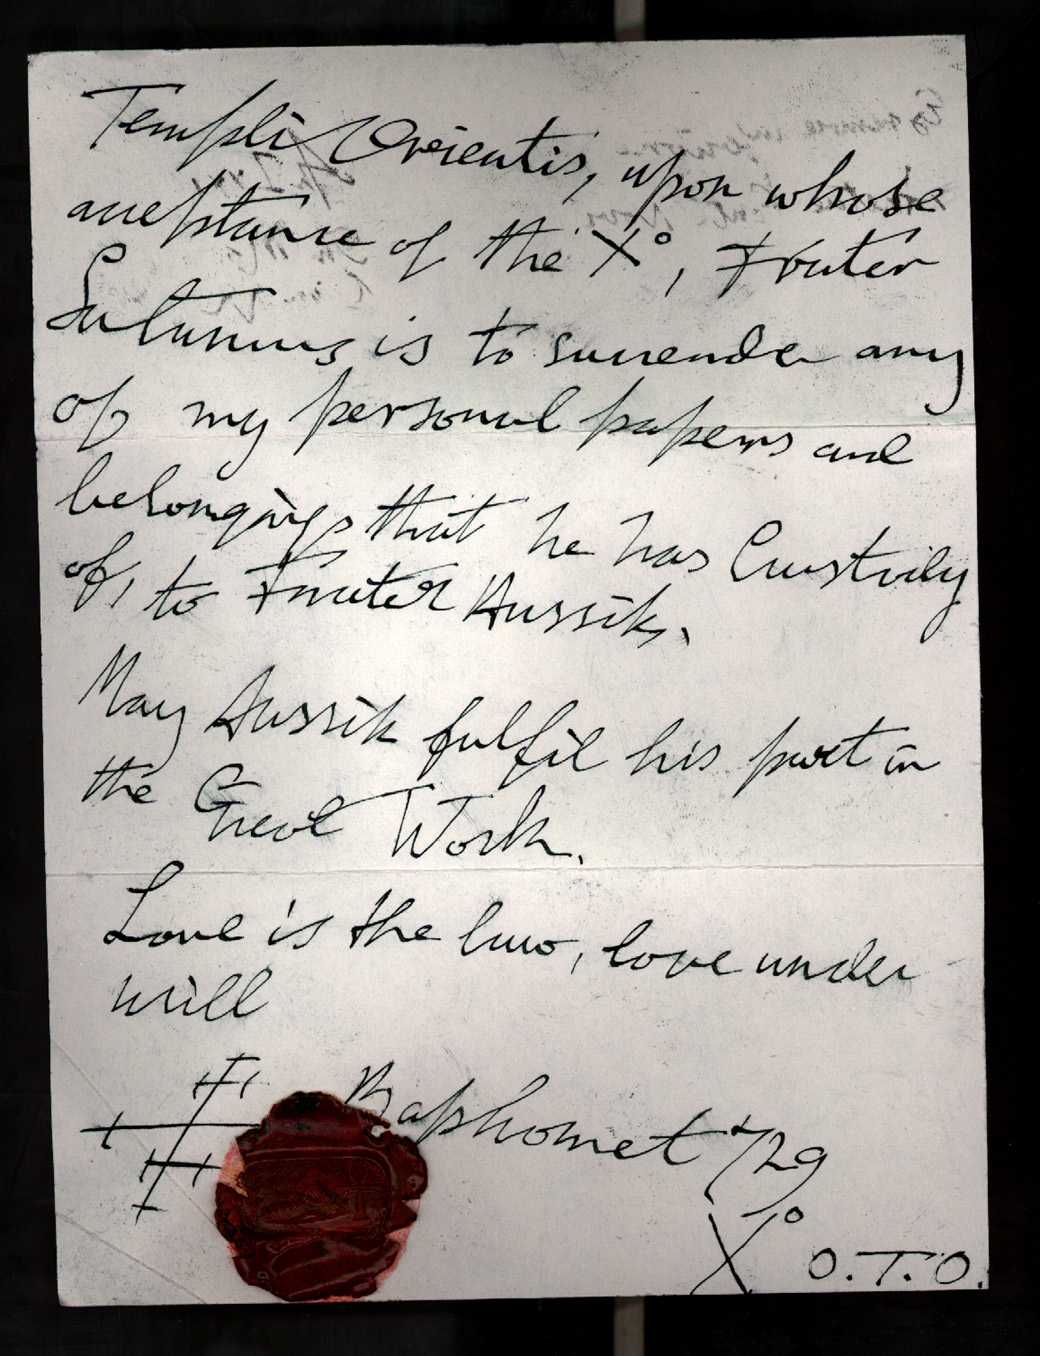 Templi Orientis, upon whose
acceptance of the X°, Frater
Saturnus is to surrender any
of my personal papers and
belongings that he has Custody
of, to Frater Aussik.
May Aussik fulfil his part in
the Great Work.
Love is the law, love under
will
Baphomet
X° O.T.O.